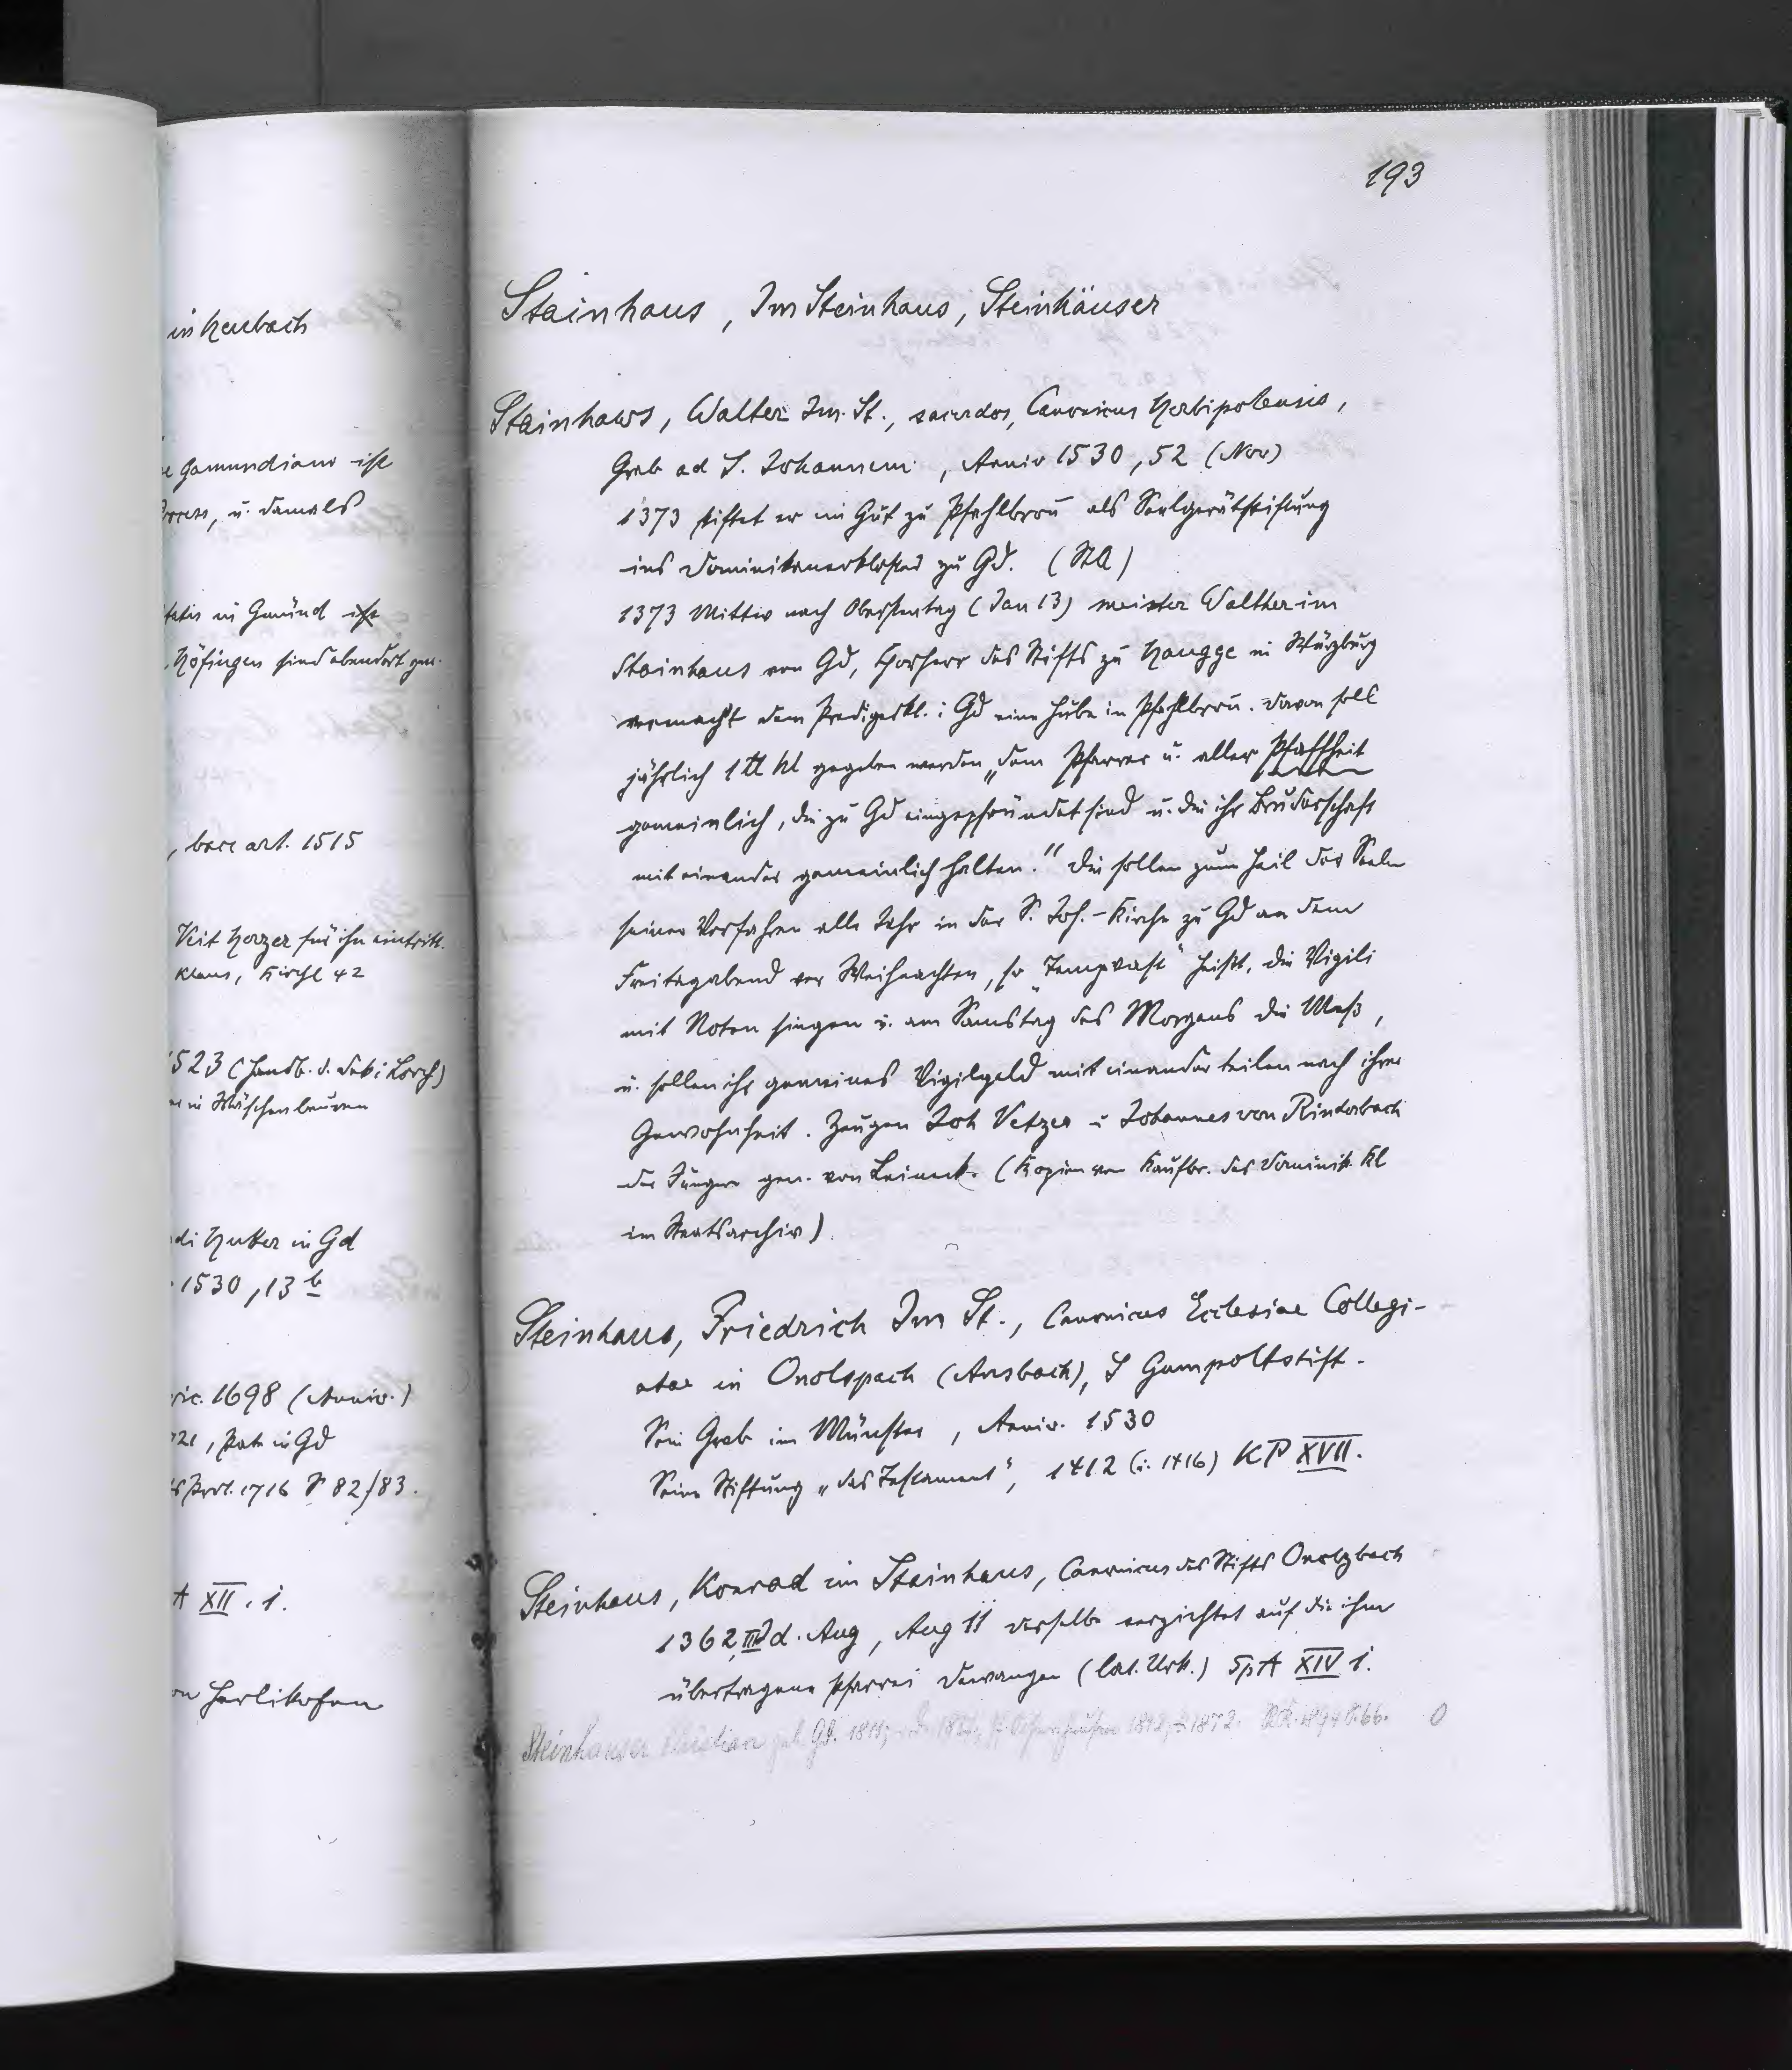 in Heubach
Gamundiano ist
Process, u. damals
in Gmünd ist
Höfingen sind ebendort gen.
, bacc art. 1515
Veit Horzer für ihn eintritt.
Klaus, Kirchl 42
1523 (Handb. d. Lorch)
in Wäschenbeuren
Hutter in Gd
1530, 13 b
1698 (Anniv.)
in Gd
Prot. 1716 S 82/83.
A XII. 1.
Herlikofen
193
Stainhaus, Im Steinhaus, Steinhäuser
Stainhaws, Walter Im St., sacerdos, Canonicus Herbipolensis,
Grab ad S. Johannem, Anniv 1530, 52 (Nov)
1373 stiftet er ein Gut zu Pfahlbron̄ als Seelgerätstiftung
ins Dominikanerkloster zu Gd. (StA)
1373 Mittw nach Oberstentag (Jan 13) meister Walther im
Stainhaus von Gd, Chorherr des Stifts zu Haugge in Würzburg
vermacht dem Predigerkl. i Gd eine Hube in Pfahlbron̄. Davon soll
jährlich 1 ℔ hl gegeben werden „dem Pfarrer u. aller Pfaffheit
gemeinlich, die zu Gd eingepfründet sind u. die ihr Bruderschaft
mit einander gemeinlich halten." Die sollen zum Heil der Seelen
seiner Vorfahren alle Jahr in der S. Joh.-Kirche zu Gd an dem
Freitagabend vor Weihnachten, so „Tempvast" heißt, die Vigili
mit Noten singen u. am Samstag des Morgens die Meß,
u. sollen ihr gemeines Vigilgeld mit einander teilen nach ihrer
Gewohnheit. Zeugen Joh Vetzer u Johannes von Rinderbach
der Jüngere gen. von Leineck. (Kopien von Kaufbr. des Dominik. Kl
im Staatsarchiv).
Steinhaus, Friedrich Im St., Canonicus Ecclesiae Collegi-
atae in Onolspach (Ansbach), S Gumpoltstift.
Sein Grab im Münster, Anniv. 1530
Seine Stiftung „das Testament", 1412 (u. 1416) KP XVII.
Steinhaus, Konrad im Stainhaus, Canonicus des Stifts Onolzbach
1362, III Id. Aug, Aug 11 derselbe verzichtet auf die ihm
übertragene Pfarrei Dewangen (lat. Urk.) SpA XIV 1.
Steinhauser Christian geb. Gd. 1811; 1872. S. 66. 0